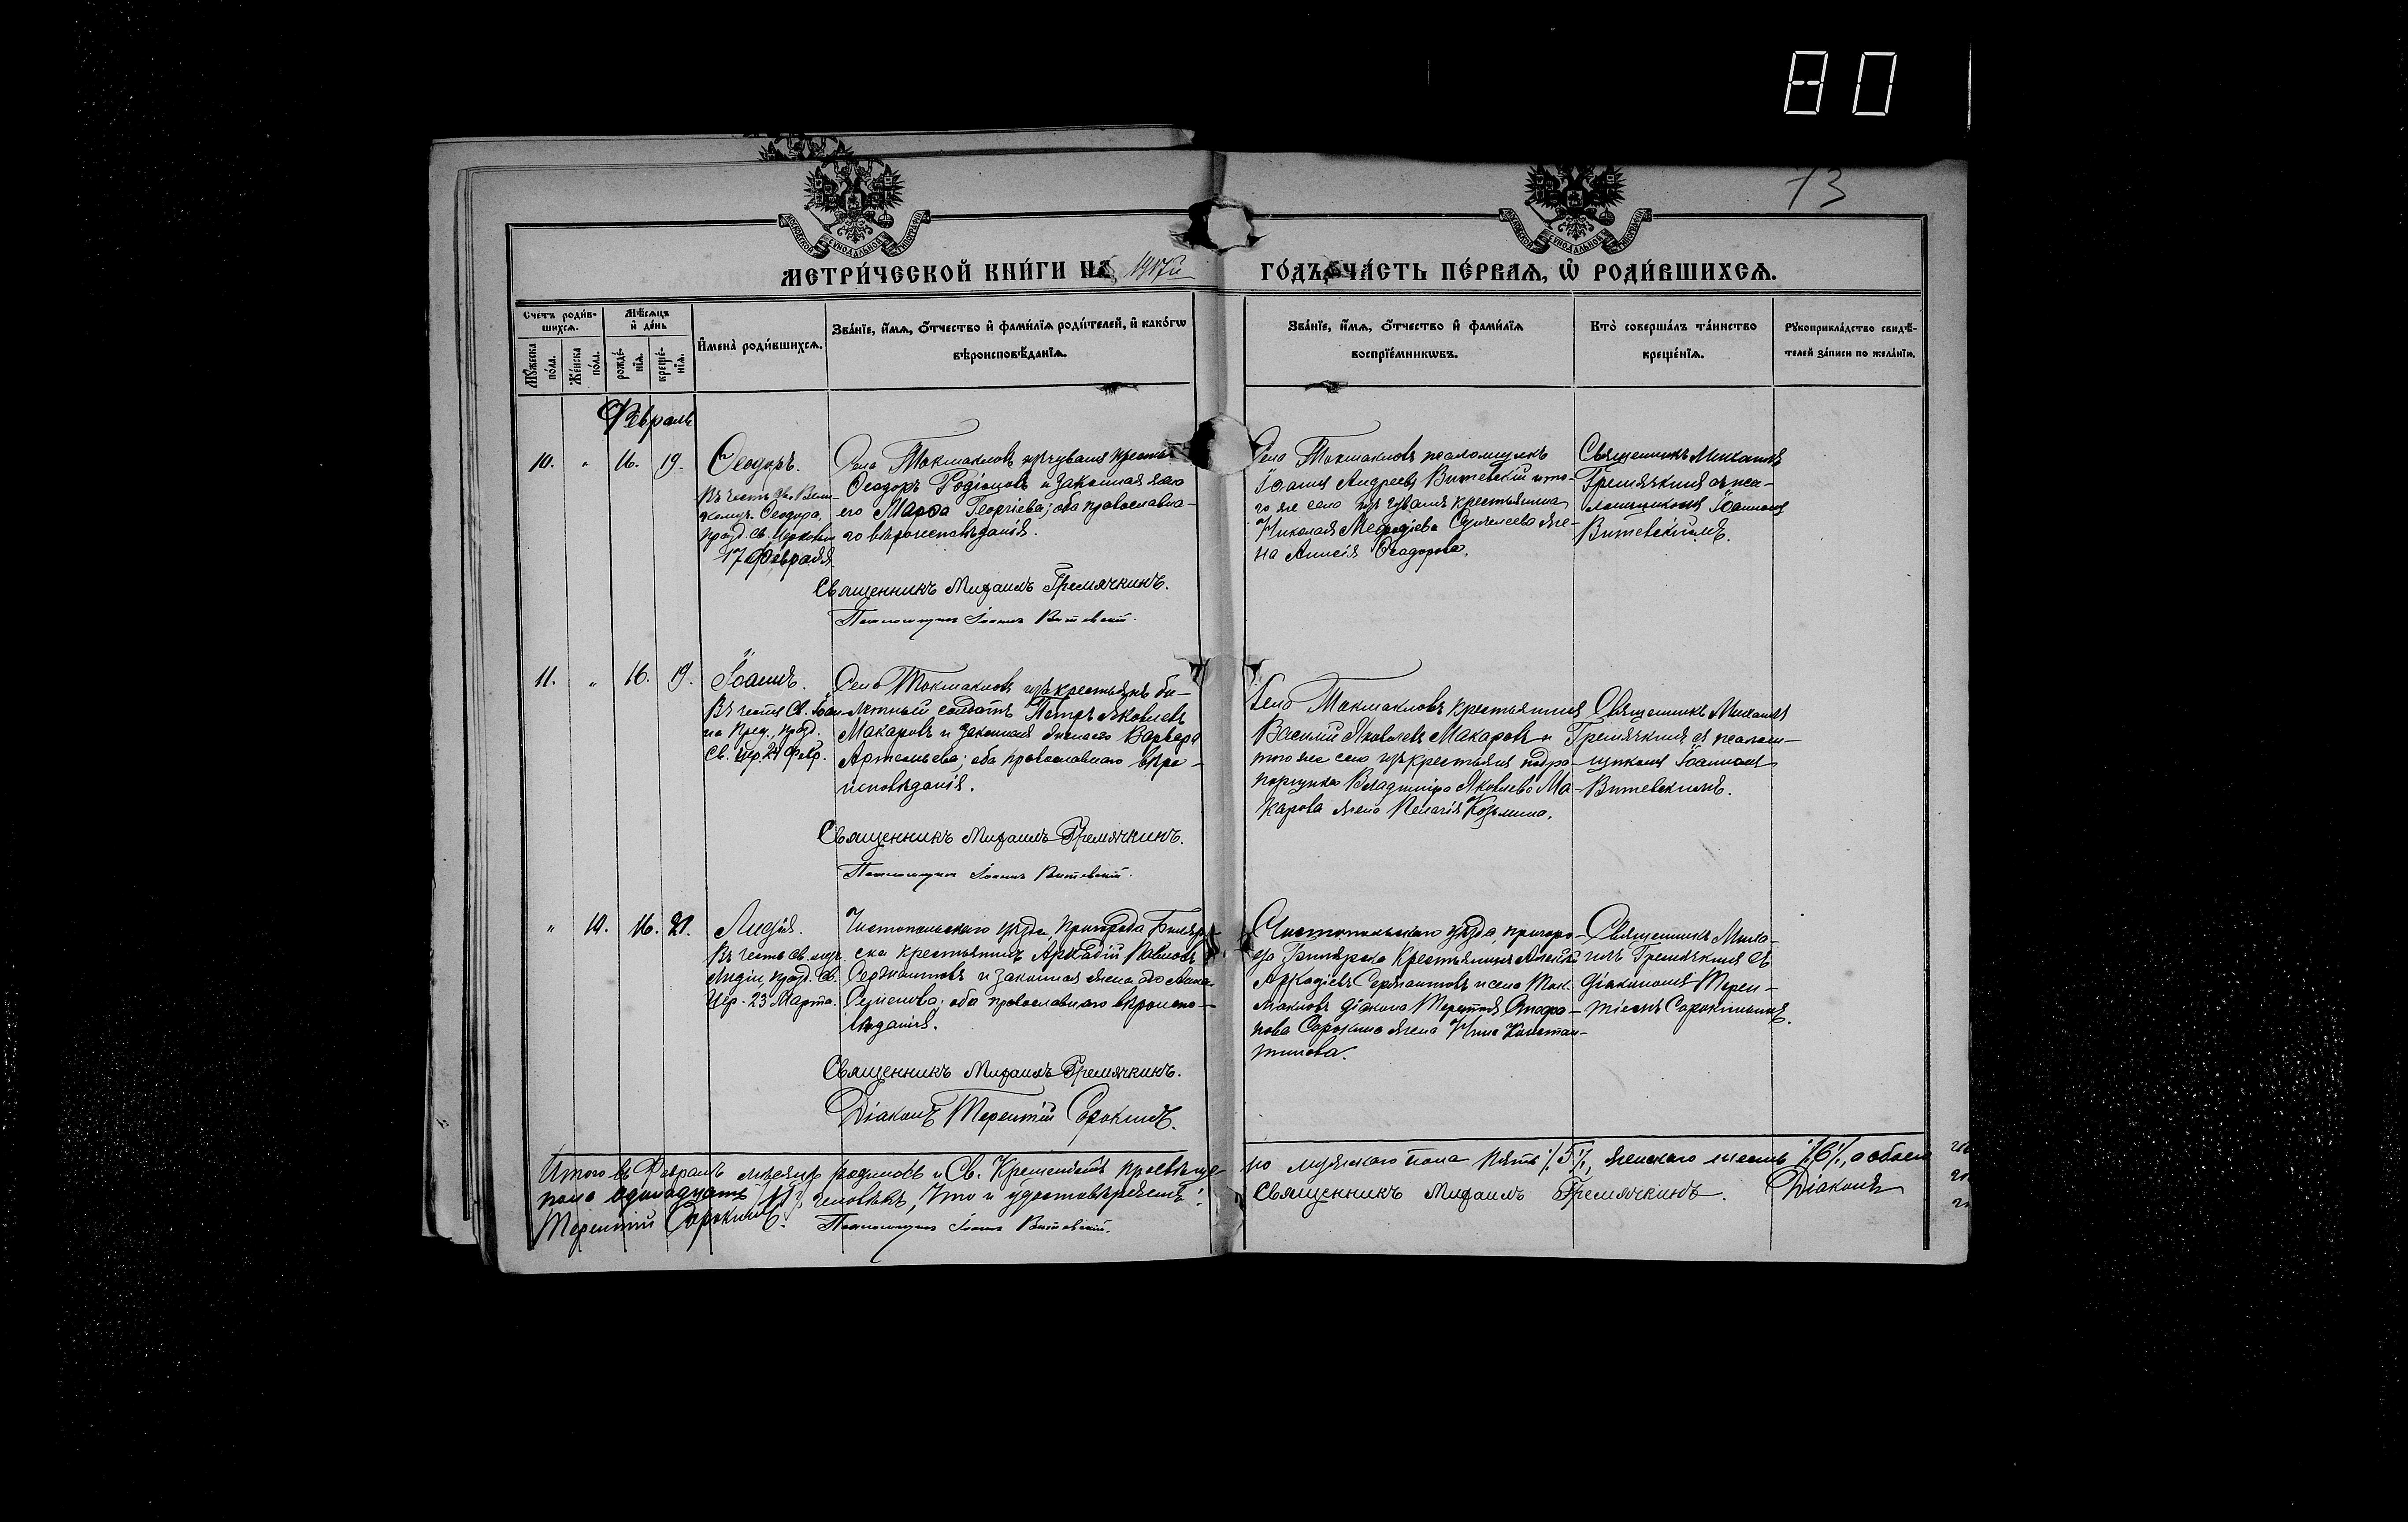 80
73
МЕТРИ́ЧЕСКОЙ КНИ́ГИ НА 1917й ГО́ДЪ, ЧА́СТЬ ПЕ́РВАЯ, Ѡ҆ РОДИ́ВШИХСѦ.
Сче́тъ роди́в-
шихсѧ.
Мѣ́сѧцъ
и҆ де́нь
Мꙋ́жеска
по́ла.
Же́нска
по́ла.
рожде́-
нїѧ.
креще́-
нїѧ.
И҆мена̀ роди́вшихсѧ.
Зва́нїе, и҆́мѧ, ѻ҆́тчество и҆ фами́лїѧ роди́телей, и҆ како́гѡ
вѣроисповѣ́данїѧ.
Зва́нїе, и҆́мѧ, ѻ҆́тчество и҆ фами́лїѧ
воспрїе́мникѡвъ.
Кто̀ соверша́лъ та́инство
креще́нїѧ.
Рꙋкоприкла́дство свидѣ́-
телей за́писи по жела́нїю.
Февраль
10. " 16. 19.
Ѳеодоръ.
Въ честь
Ѳеодора,
празд. Св. Церковью
17 февраля
Села Токмакловъ изъ чувашъ
Ѳеодоръ Родіоновъ и законная жена
его Марѳа Георгіева; оба православна-
го вѣроисповѣданія.
Священникъ Михаилъ Гремячкинъ.
Псаломщикъ Іоаннъ Витевскій.
Села Токмакловъ псаломщикъ
Іоаннъ Андреевъ Витевскій и то-
го же села изъ чувашъ крестьянина
Николая Меѳодіева же-
на Анисія Ѳеодорова.
Священникъ Михаилъ
Гремячкинъ съ пса-
ломщикомъ Іоанномъ
Витевскимъ.
11. " 16. 19.
Іоаннъ.
Въ честь Св. Іоан-
на Пред., празд.
Св. Цер. 24 Февр.
Села Токмакловъ изъ крестьянъ би-
летный солдатъ Петръ Яковлевъ
Макаровъ и законная жена его Варвара
Артемьева; оба православнаго вѣро-
исповѣданія.
Священникъ Михаилъ Гремячкинъ.
Псаломщикъ Іоаннъ Витевскій.
Села Токмакловъ крестьянинъ
Василій Яковлевъ Макаровъ и
того же села изъ крестьянъ подпо-
ручика Владиміра Яковлева Ма-
карова жена Пелагія Козьмина.
Священникъ Михаилъ
Гремячкинъ съ псалом-
щикомъ Іоанномъ
Витевскимъ.
" 10. 16. 21.
Лидія.
Въ честь Св. муч.
Лидіи, празд. Св.
Цер. 23 Марта.
Чистопольскаго уѣзда, пригорода Биляр-
ска крестьянинъ Аркадій Павловъ
Сержантовъ и законная жена его Анна
оба православнаго вѣроиспо-
вѣданія.
Священникъ Михаилъ Гремячкинъ.
Діаконъ Терентій Сорокинъ.
Чистопольскаго уѣзда, пригоро-
да Билярска крестьянинъ Алексѣй
Аркадіевъ Сержантовъ и села Ток-
макловъ діакона Терентія
Сорокина жена Нина Констан-
тинова.
Священникъ Миха-
илъ Гремячкинъ съ
діакономъ Терен-
тіемъ Сорокинымъ.
Итого въ Февралѣ мѣсяцѣ родилось и Св. Крещеніемъ просвѣще-но мужескаго пола пять /5/, женскаго шесть /6/, а обоего
пола одиннадцать /11/ человѣкъ, Что и удостовѣряемъ: Священникъ Михаилъ Гремячкинъ. Діаконъ
Терентій Сорокинъ. Псаломщикъ Іоаннъ Витевскій.